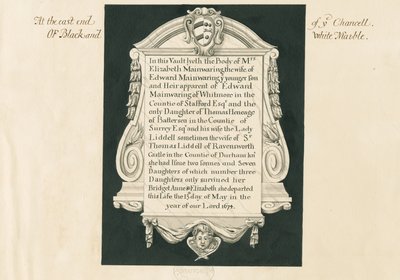 At the east end
of yͤ Chancell.
Of Black and
White Marble.
In this Vault lyeth the Body of Mʳˢ
Elizabeth Mainwaring the wife of
Edward Mainwaring yͤ younger son
and Heir apparent of Edward
Mainwaring of Whitmore in the
Countie of Stafford Esqʳ and the
only Daughter of Thomas Heneage
of Batterson in the Countie of
Surrey Esqʳ and his wife the Lady
Liddell sometimes the wife of Sʳ
Thomas Liddell of Ravensworth
Castle in the Countie of Durham knᵗ
she had Issue two Sonnes and Seven
Daughters of which number three
Daughters only survived her
Bridget Anne & Elizabeth she departed
this Life the 15 day of May in the
year of our Lord 1674.